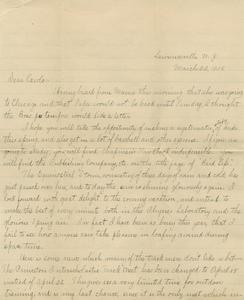 Lawrenceville N. J.
March 22, 19
Dear Carlo:
Having heard from Mama this morning that she was going
to Chicago and that Papa would not be back until Sunday, I thought
the Boss pro tempore would like a letter.
I hope you will take the opportunity of making a
this spring and get in a lot of baseball and other games. If you
find the Publishing Company, etc. on the title page of "Bird Life".
The Equinoctial Storm, consisting of three days of rain and cold has
just passed over here, and to-day the sun is shining gloriously again. I
look forward with great delight to the coming vacation, and intend to
make the best of every minute both in the Physics Laboratory and the
In fact I have been so busy this year, that I
fail to see how anyone can take pleasure in loafing around during
spare time.
Here is some news which many of the track men don't like a bit:
The Princeton Interscholastic Meet has been changed to April 15
instead of April 22. This gives us a very limited time for outdoor
training, and is my last chance, since it is the only meet which